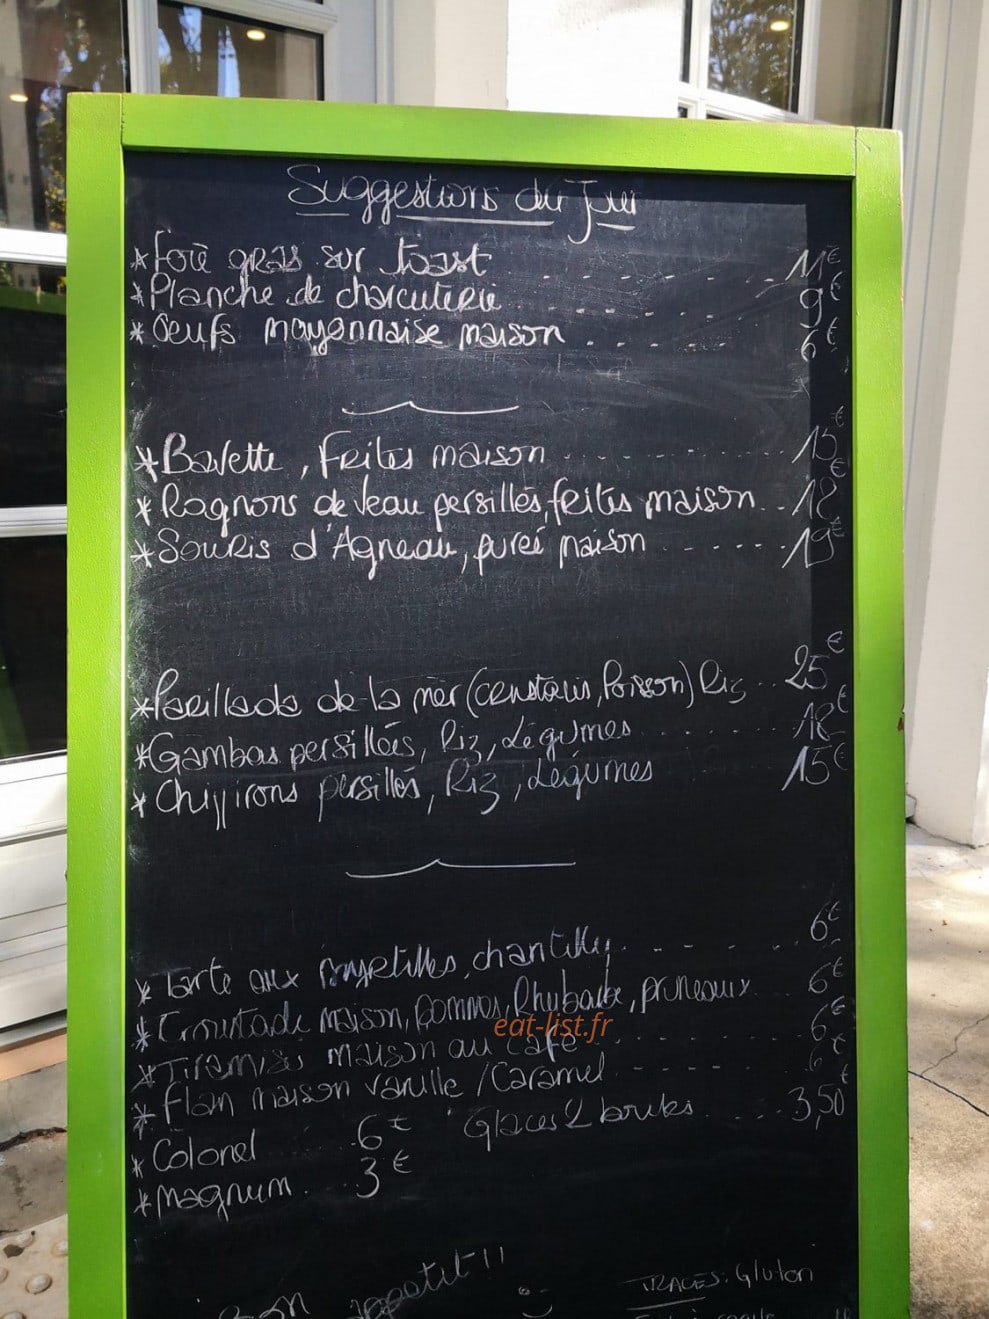 Suggestions du Jour
*Foie gras sur toast . . . . . . . . 11€
*Planche de charcuterie . . . . . . 9€
*Oeufs mayonnaise maison . . . . . . 6€
*Bavette, Frites maison . . . . . . . . 15€
*Rognons de Veau persillés, frites maison . . 18€
*Souris d'Agneau, purée maison . . . . . . 19€
*Parillada de la mer (crustacés, Poisson) Riz . . 25€
*Gambas persillées, Riz, Légumes . . . . . . 18€
*Chipirons persillés, Riz, Légumes 15€
*Tarte aux myrtilles, chantilly . . . . . . 6€
*Croustade maison, pommes, Rhubarbe, pruneaux 6€
eat-list.fr
*Tiramisu maison au café . . . . . . 6€
*Flan maison vanille / Caramel . . . . . 6€
*Colonel . . . 6€ Glaces 2 boules . . . . 3,50€
*Magnum . . . 3€
Bon appétit !!
TRACES: Gluten